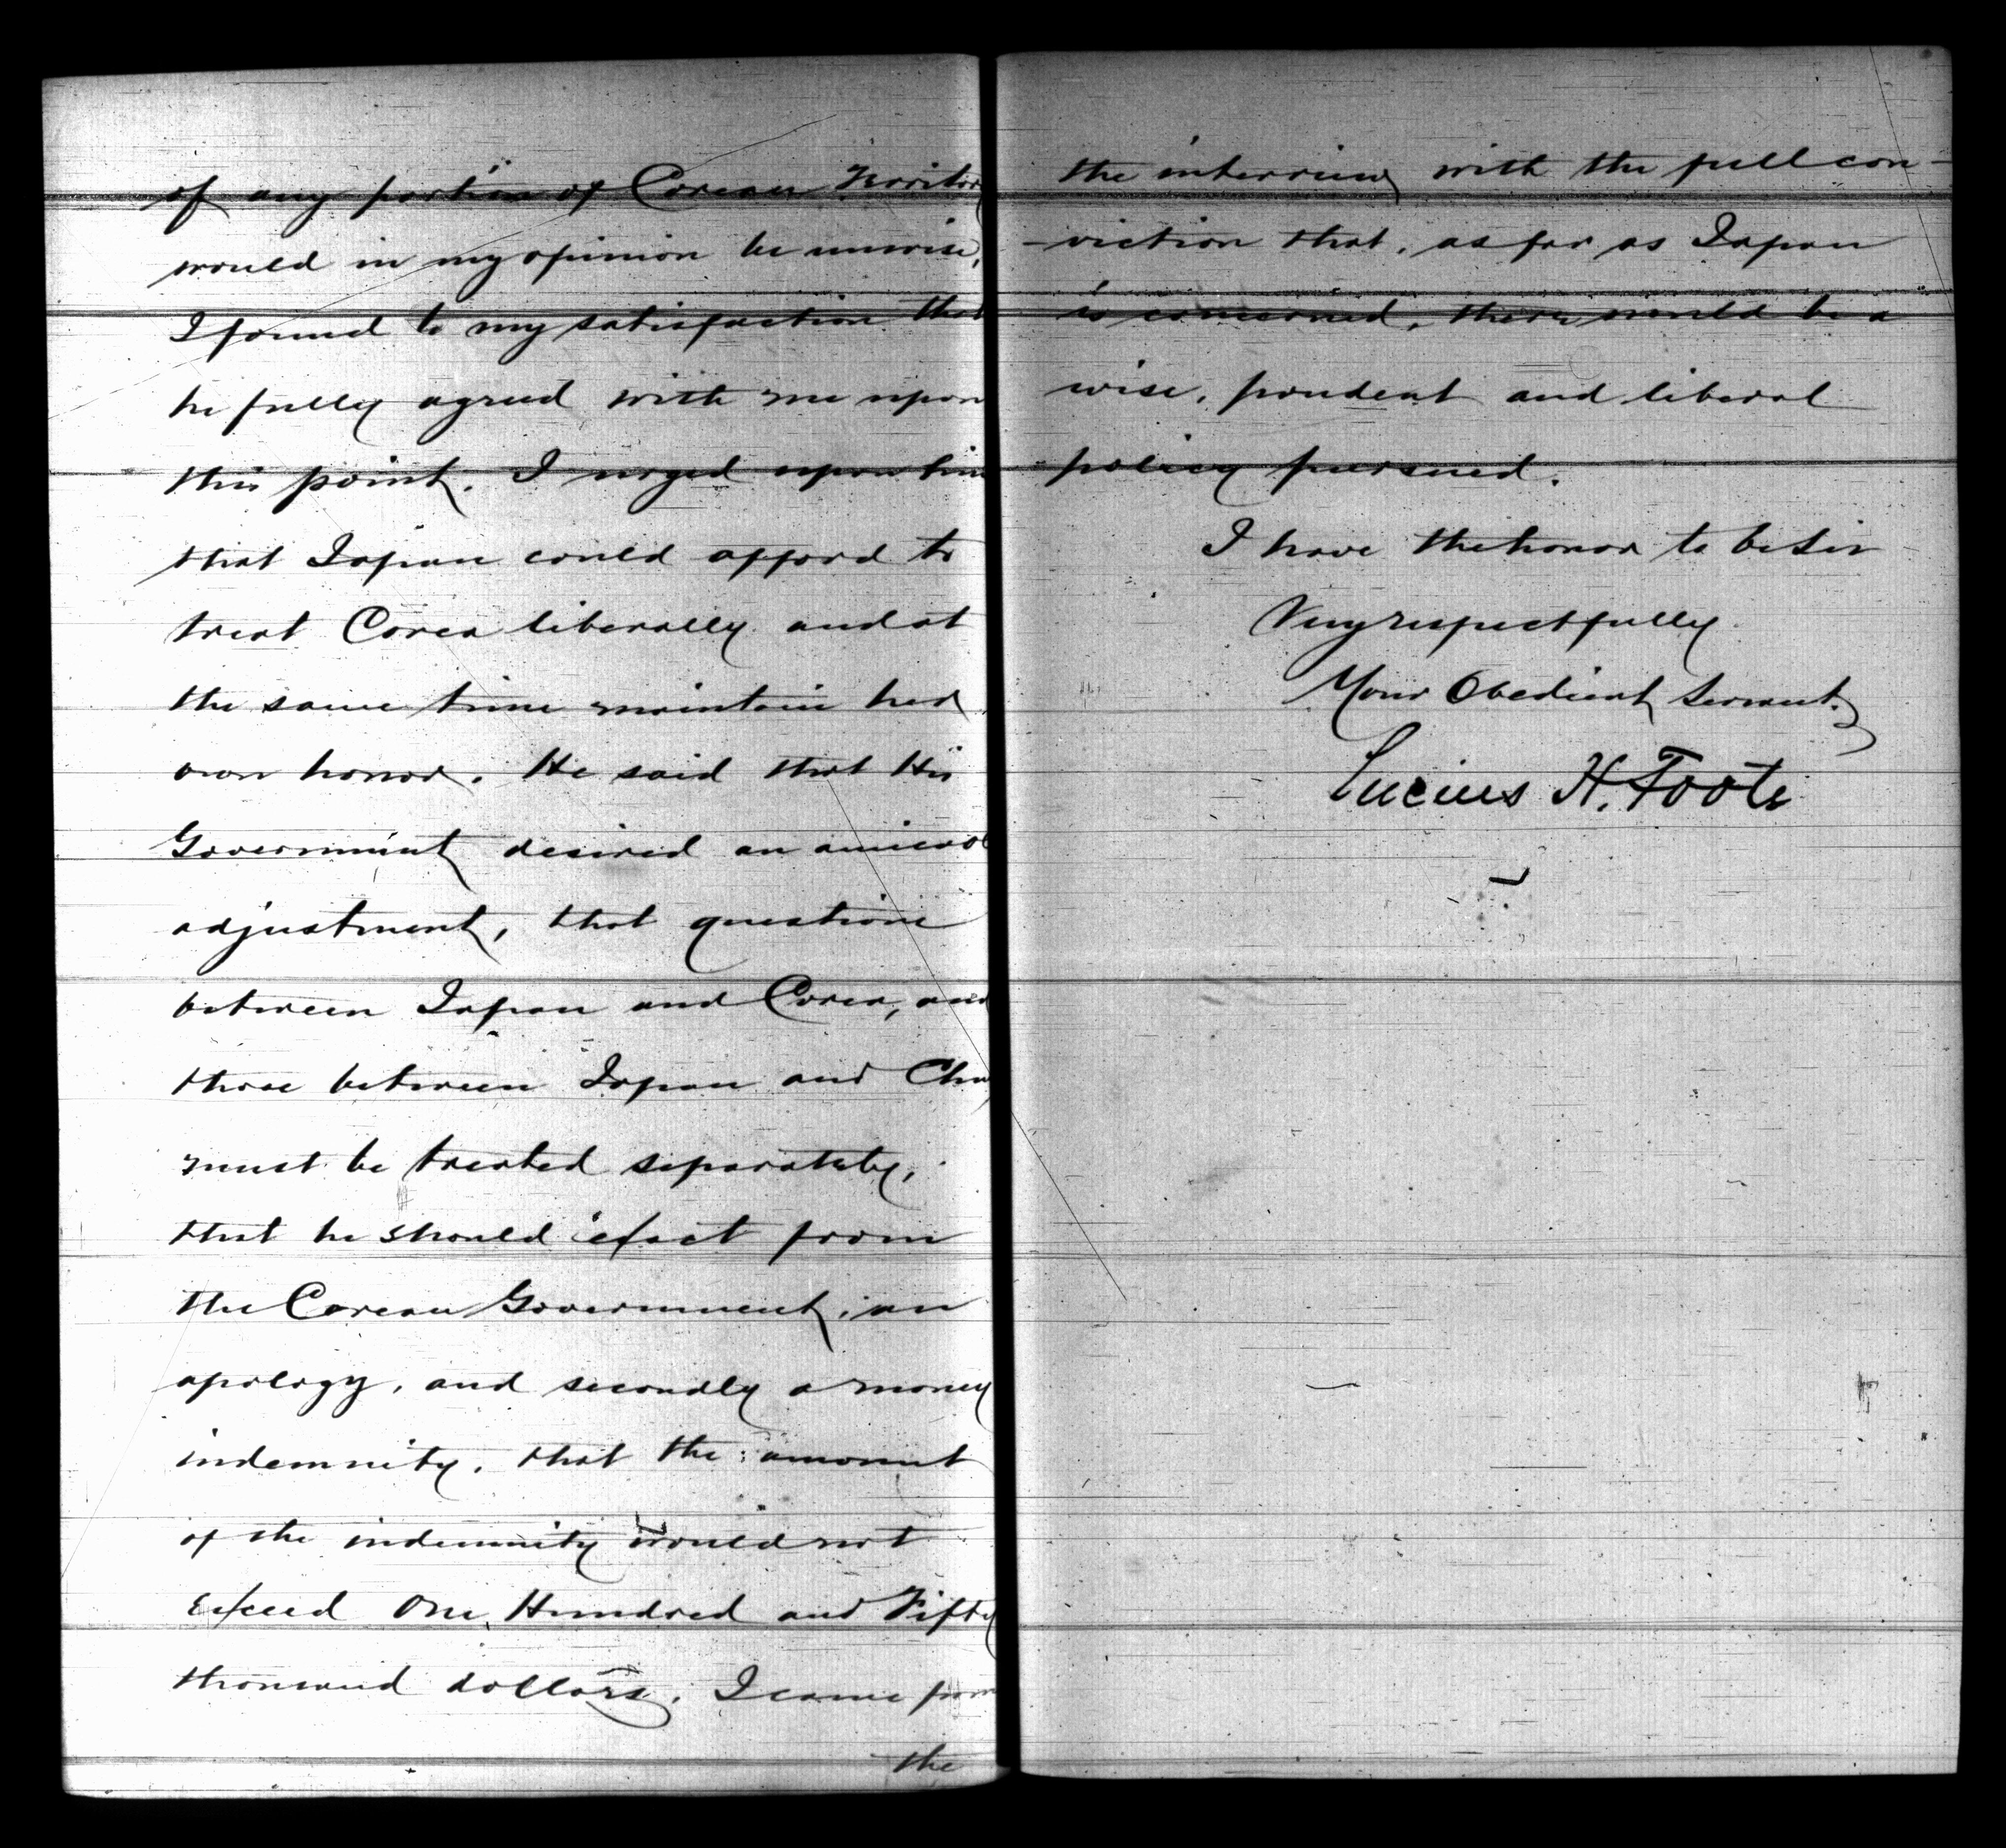 of any portion of Corean Territory
would in my opinion be unwise,
I found to my satisfaction that
he fully agreed with me upon
this point. I urged upon him
that Japan could afford to
treat Corea liberally and at
the same time maintain her
own honor. He said that His
Government desired an amicable
adjustment, that questions
between Japan and Corea, and
those between Japan and China
must be treated separately,
that he should exact from
the Corean Government, an
apology, and secondly a money
indemnity, that the amount
of the indemnity would not
exceed One Hundred and Fifty
thousand dollars. I came from
the
the interview with the full con-
-viction that, as far as Japan
is concerned, there would be a
wise, prudent and liberal
policy pursued.
I have the honor to be Sir
Very respectfully
Your Obedient Servant.
Lucius H. Foote